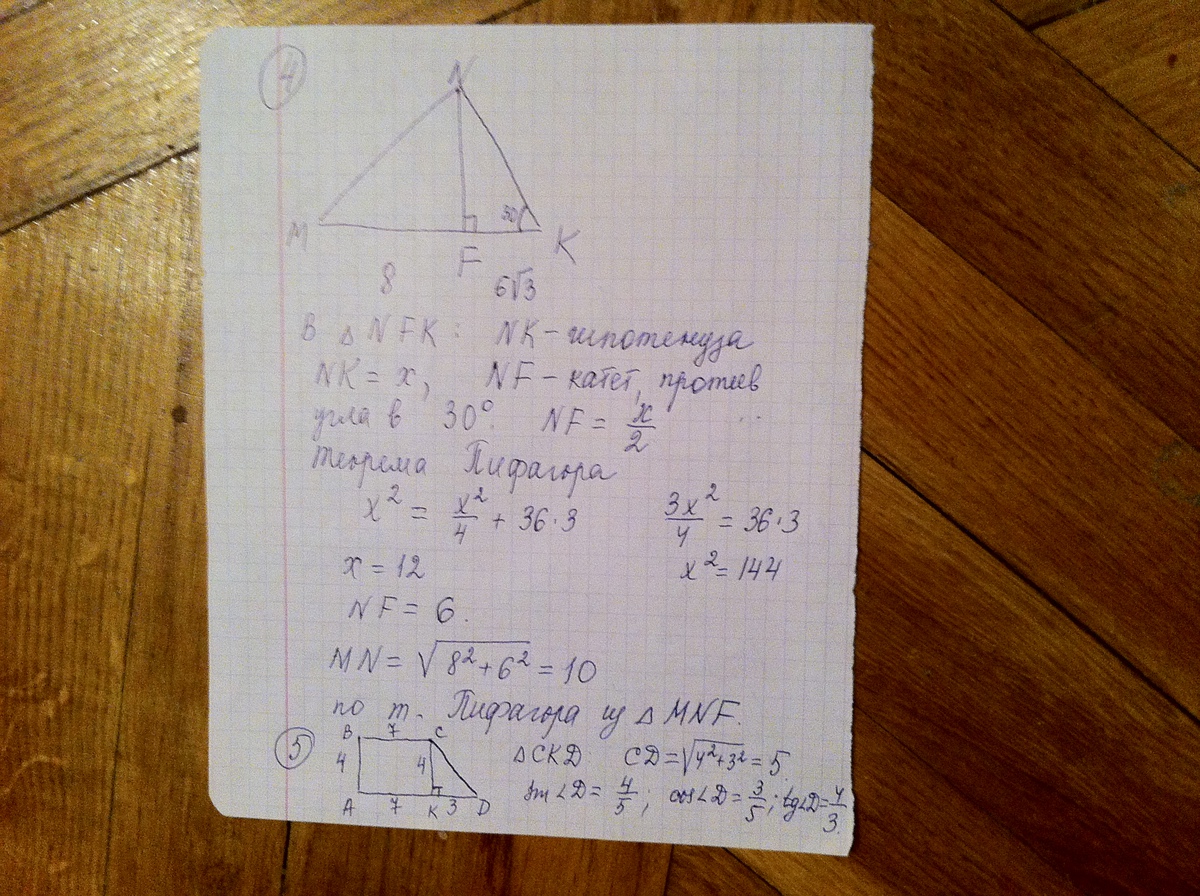 4
N
30
M F K
8 6√3
В △ NFK: NK – гипотенуза
NK = x, NF – катет, против
угла в 30°. NF = x/2
теорема Пифагора
x² = x²/4 + 36·3 3x²/4 = 36·3
x = 12 x² = 144
NF = 6.
MN = √(8²+6²) = 10
по т. Пифагора из △ MNF.
5 B 7 C △CKD CD = √(4²+3²) = 5
4 4 sin∠D = 4/5; cos∠D = 3/5; tg∠D = 4/3.
A 7 K 3 D